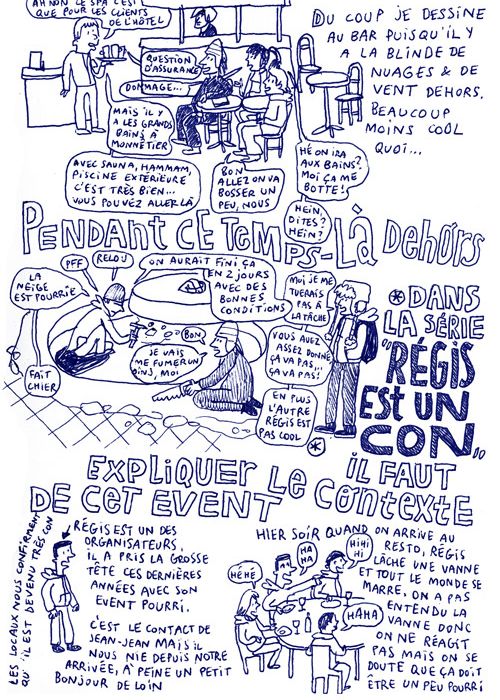 AH NON LE SPA C'EST
QUE POUR LES CLIENTS
DE L'HÔTEL
QUESTION
D'ASSURANCE
DOMMAGE...
MAIS IL Y
A LES GRANDS
BAINS À
MONNETIER
AVEC SAUNA, HAMMAM,
PISCINE EXTÉRIEURE
C'EST TRÈS BIEN...
VOUS POUVEZ ALLER LÀ
BON
ALLEZ ON VA
BOSSER UN
PEU, NOUS
HÉ ON IRA
AUX BAINS?
MOI ÇA ME
BOTTE!
HEIN,
DITES?
HEIN?
DU COUP JE DESSINE
AU BAR PUISQU'IL Y
A LA BLINDE DE
NUAGES & DE
VENT DEHORS.
BEAUCOUP
MOINS COOL
QUOI...
PENDANT CE TEMPS-LÀ DEHORS
LA
NEIGE
EST POURRIE
PFF
RELOU
ON AURAIT FINI ÇA
EN 2 JOURS
AVEC DES
BONNES
CONDITIONS
FAIT
CHIER
BON
JE VAIS
ME FUMER UN
OINJ, MOI
MOI JE ME
TUERAIS
PAS À
LA TÂCHE
VOUS AVEZ
ASSEZ DONNÉ
ÇA VA PAS...
ÇA VA PAS!
EN PLUS
L'AUTRE
RÉGIS EST
PAS COOL
*
* DANS
LA SÉRIE
"RÉGIS
EST UN
CON"
IL FAUT
EXPLIQUER LE CONTEXTE
DE CET EVENT
LES LOCAUX NOUS CONFIRMENT
QU'IL EST DEVENU TRÈS CON
RÉGIS EST UN DES
ORGANISATEURS,
IL A PRIS LA GROSSE
TÊTE CES DERNIÈRES
ANNÉES AVEC SON
EVENT POURRI.
C'EST LE CONTACT DE
JEAN-JEAN MAIS IL
NOUS NIE DEPUIS NOTRE
ARRIVÉE, À PEINE UN PETIT
BONJOUR DE LOIN
HIER SOIR QUAND ON ARRIVE AU
RESTO, RÉGIS
LÂCHE UNE VANNE
ET TOUT LE MONDE SE
MARRE, ON A PAS
ENTENDU LA
VANNE DONC
ON NE RÉAGIT
PAS MAIS ON SE
DOUTE QUE ÇA DOIT
ÊTRE UN PEU POURRI
HÉHÉ
HA
HA
HIHI
HI
HAHA